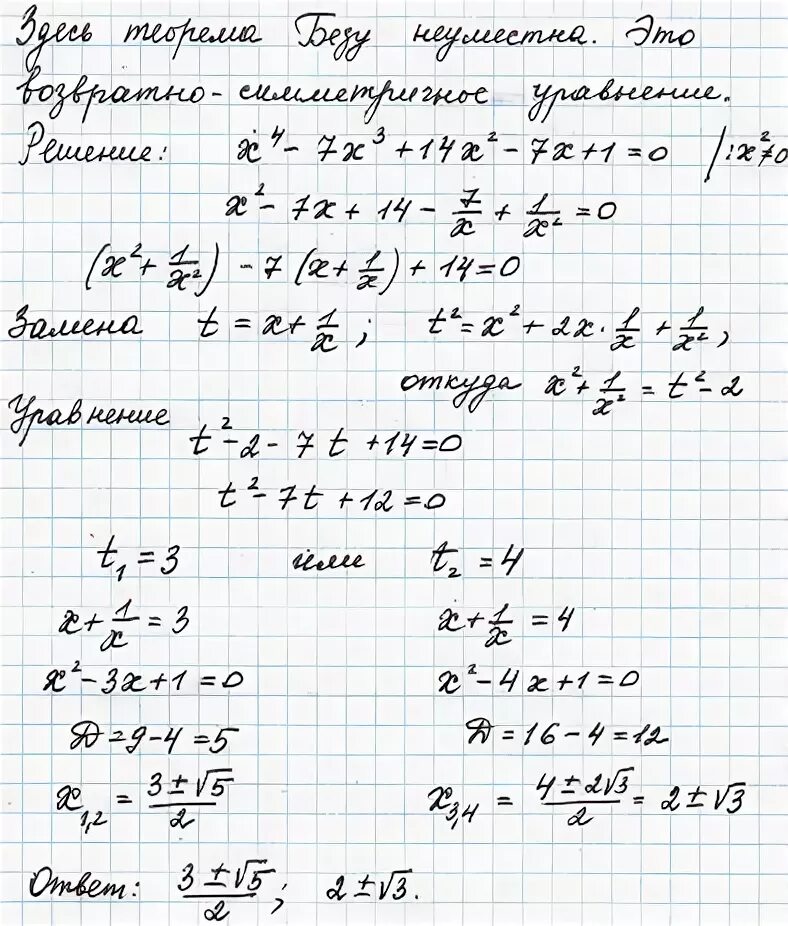 Здесь теорема Безу неуместна. Это
возвратно-симметричное уравнение.
Решение: x⁴ - 7x³ + 14x² - 7x + 1 = 0 | : x² ≠ 0
x² - 7x + 14 - 7/x + 1/x² = 0
(x² + 1/x²) - 7 (x + 1/x) + 14 = 0
Замена t = x + 1/x ; t² = x² + 2x · 1/x + 1/x²,
откуда x² + 1/x² = t² - 2
Уравнение
t² - 2 - 7t + 14 = 0
t² - 7t + 12 = 0
t₁ = 3 или t₂ = 4
x + 1/x = 3 x + 1/x = 4
x² - 3x + 1 = 0 x² - 4x + 1 = 0
D = 9 - 4 = 5 D = 16 - 4 = 12
x₁,₂ = (3 ± √5)/2 x₃,₄ = (4 ± 2√3)/2 = 2 ± √3
Ответ: (3 ± √5)/2 ; 2 ± √3.